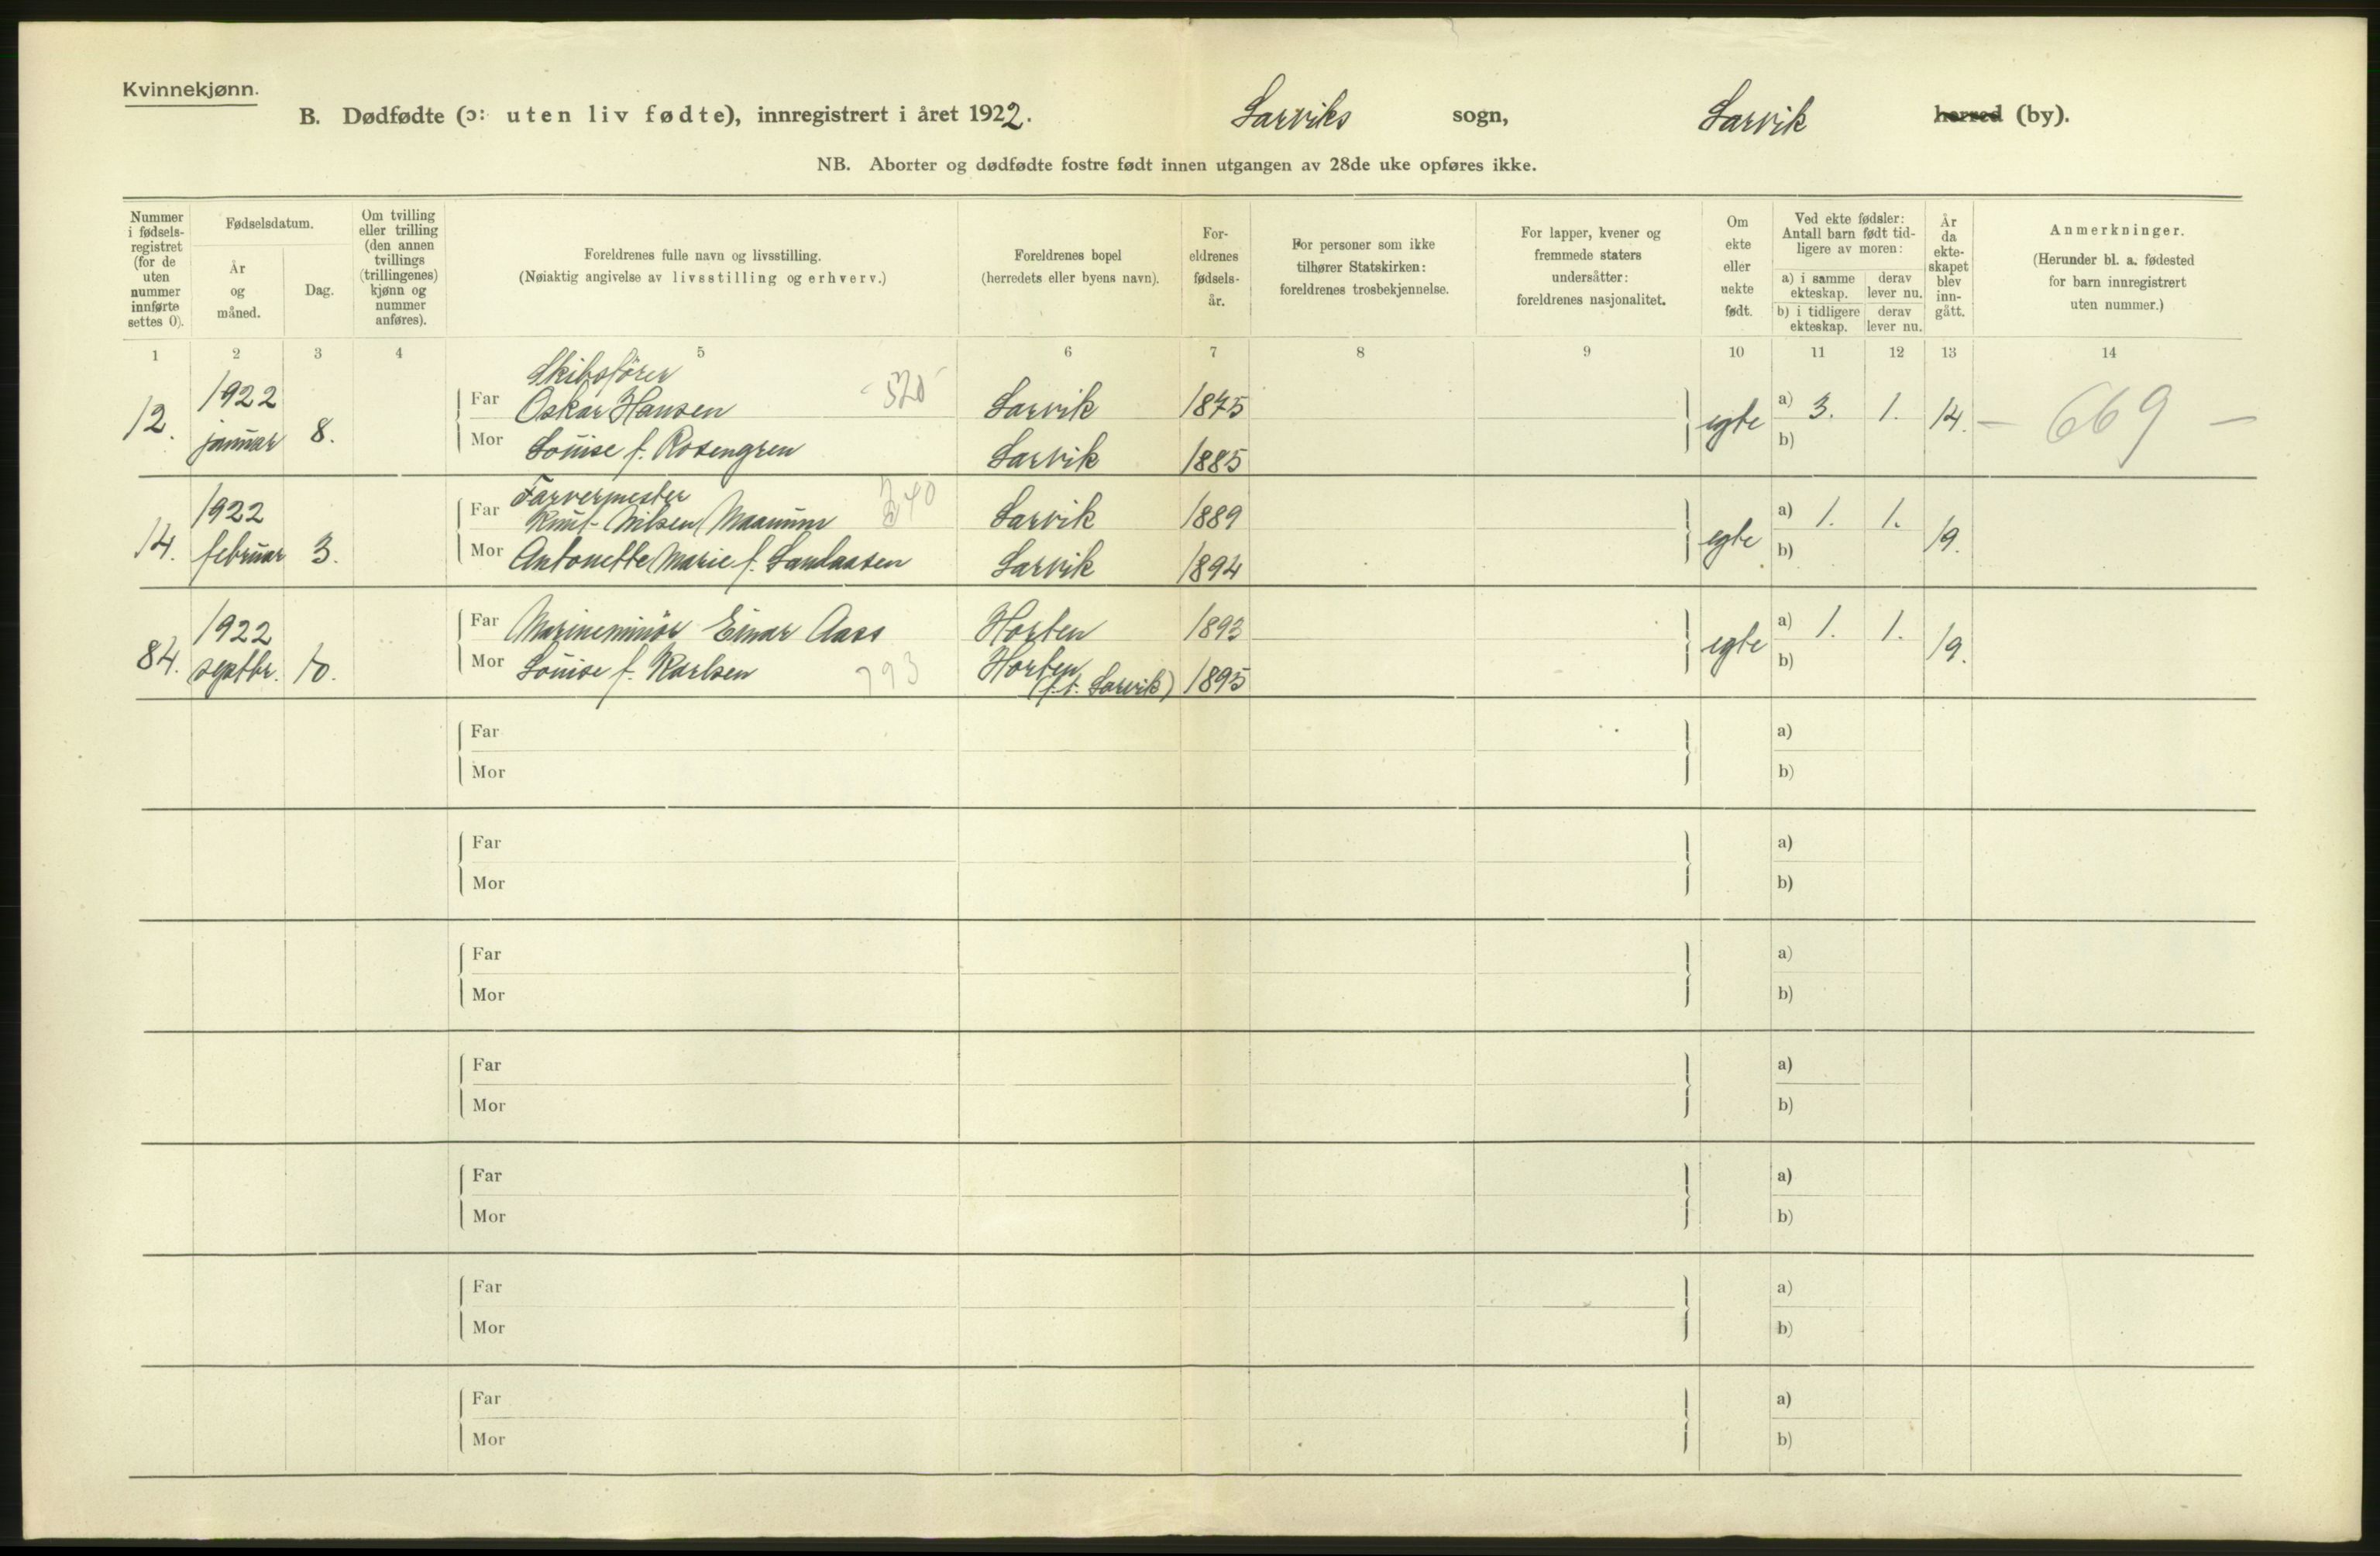 Kvinnekjønn.
B. Dødfødte (ɔ: uten liv fødte), innregistrert i året 1922. Larviks sogn, Larvik herred (by).
NB. Aborter og dødfødte fostre født innen utgangen av 28de uke opføres ikke.
Nummer i fødsels-registret (for de uten nummer innførte settes 0).
Fødselsdatum.
År og måned.
Dag.
Om tvilling eller trilling (den annen tvillings (trillingenes) kjønn og nummer anføres).
Foreldrenes fulle navn og livsstilling.
(Nøiaktig angivelse av livsstilling og erhverv.)
Foreldrenes bopel
(herredets eller byens navn).
For-eldrenes fødsels-år.
For personer som ikke tilhører Statskirken: foreldrenes trosbekjennelse.
For lapper, kvener og fremmede staters undersåtter: foreldrenes nasjonalitet.
Om ekte eller uekte født.
Ved ekte fødsler: Antall barn født tid-ligere av moren:
a) i samme ekteskap. derav lever nu.
b) i tidligere ekteskap. derav lever nu.
År da ekte-skapet blev inn-gått.
Anmerkninger.
(Herunder bl. a. fødested for barn innregistrert uten nummer.)
1 2 3 4 5 6 7 8 9 10 11 12 13 14
Skibsfører
12. 1922 januar 8. Far Oskar Hansen 520 Larvik 1875 egte a) 3. 1. 14. – 669 –
Mor Louise f. Rosengren Larvik 1885 b)
Farvermester
14. 1922 februar 3. Far Knut Nilsen Maanum 240 Larvik 1889 egte a) 1. 1. 19.
Mor Antonette Marie f. Sandaasen Larvik 1894 b)
84. 1922 septbr. 10. Far Marineminör Einar Aass Horten 1893 egte a) 1. 1. 19.
Mor Louise f. Karlsen 793 Horten (f.t. Larvik) 1895 b)
Far a)
Mor b)
Far a)
Mor b)
Far a)
Mor b)
Far a)
Mor b)
Far a)
Mor b)
Far a)
Mor b)
Far a)
Mor b)